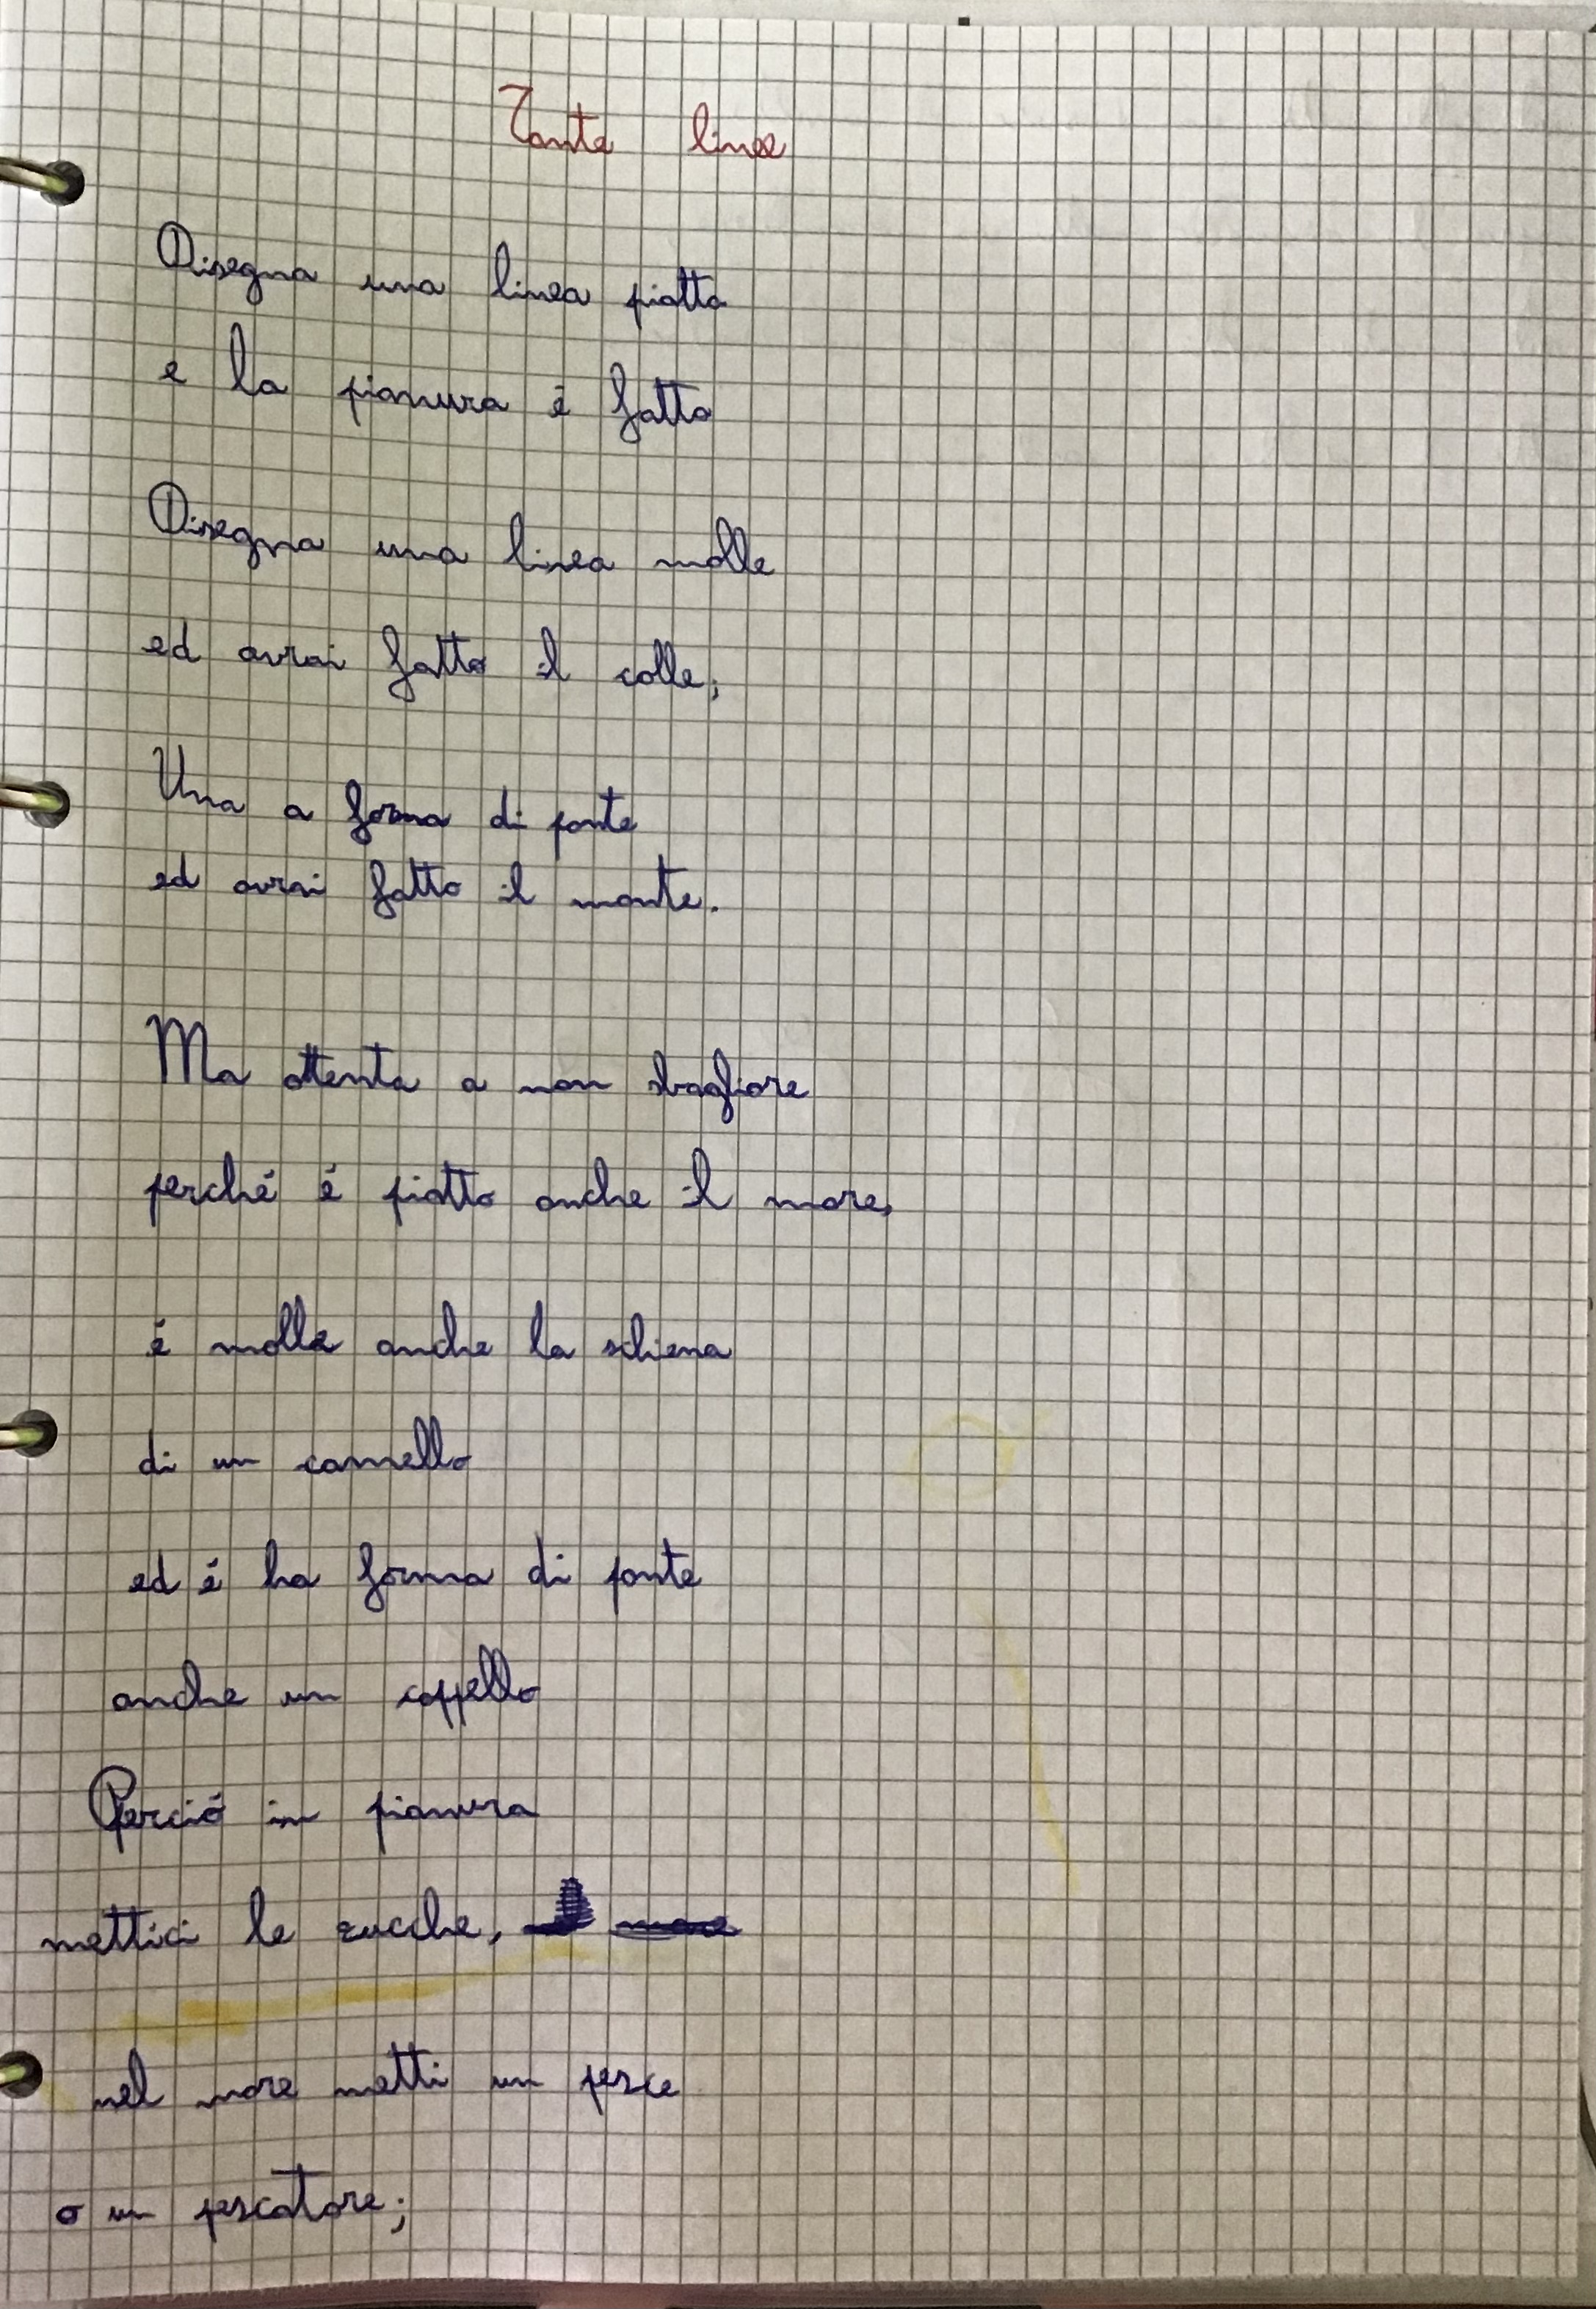 Tante linee
Disegna una linea piatta
e la pianura é fatta
Disegna una linea molle
ed avrai fatto il colle;
Una a forma di ponte
ed avrai fatto il monte.
Ma attenta a non sbagliare
perché é piatto anche il mare,
é molle anche la schiena
di un cammello
ed é ha forma di ponte
anche un cappello
Perció in pianura
mettici le zucche,
nel mare metti un pesce
o un pescatore;